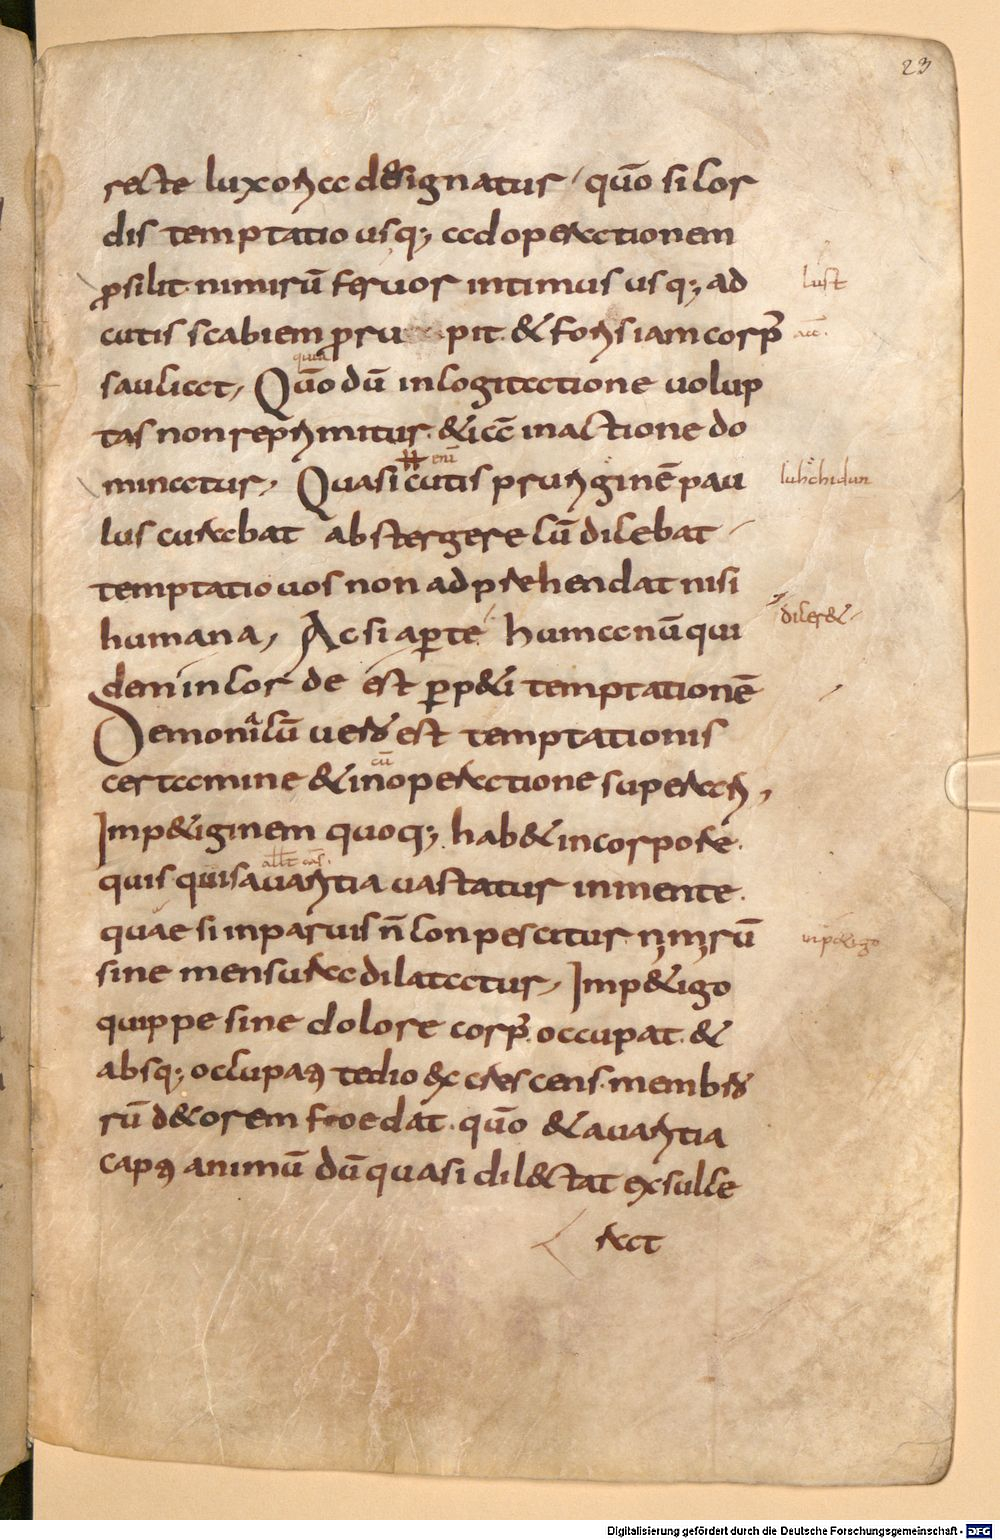 23
recte luxoria designatur quō si cor
dis temptatio usq; ad operationem
prosilit nimirū fervor intimus usq; ad
lust
cutis scabiem pru pit & foris iam corp̄
quia
sauciat, Quō dū in cogitatione volup
tas non reprimitur & iā in actione do
enī
minatur, Quasi cutis pruriginē pau
luhchidun
lus curabat abstergere cū dicebat
temptatio vos non adprehendat nisi
humana, Ac si aperte humanū qui
dicer&
dem in corde est perp&i temptationē
Demoniacū vero est temptationis
cū
certamine & in operatione superari,
Imp&iginem quoq; hab& in corpore
quis quis avaritia vastatur in mente.
quae si in parvis n̄ conpescitur nimirū
inp&igo
sine mensura dilatatur, Imp&igo
quippe sine dolore corp̄ occupat &
absq; occupati tedio excrescens membro
rū d&corem foedat. quō & avaritia
capti animū dū quasi dilectat exsulce
rat
Digitalisierung gefördert durch die Deutsche Forschungsgemeinschaft - DFG